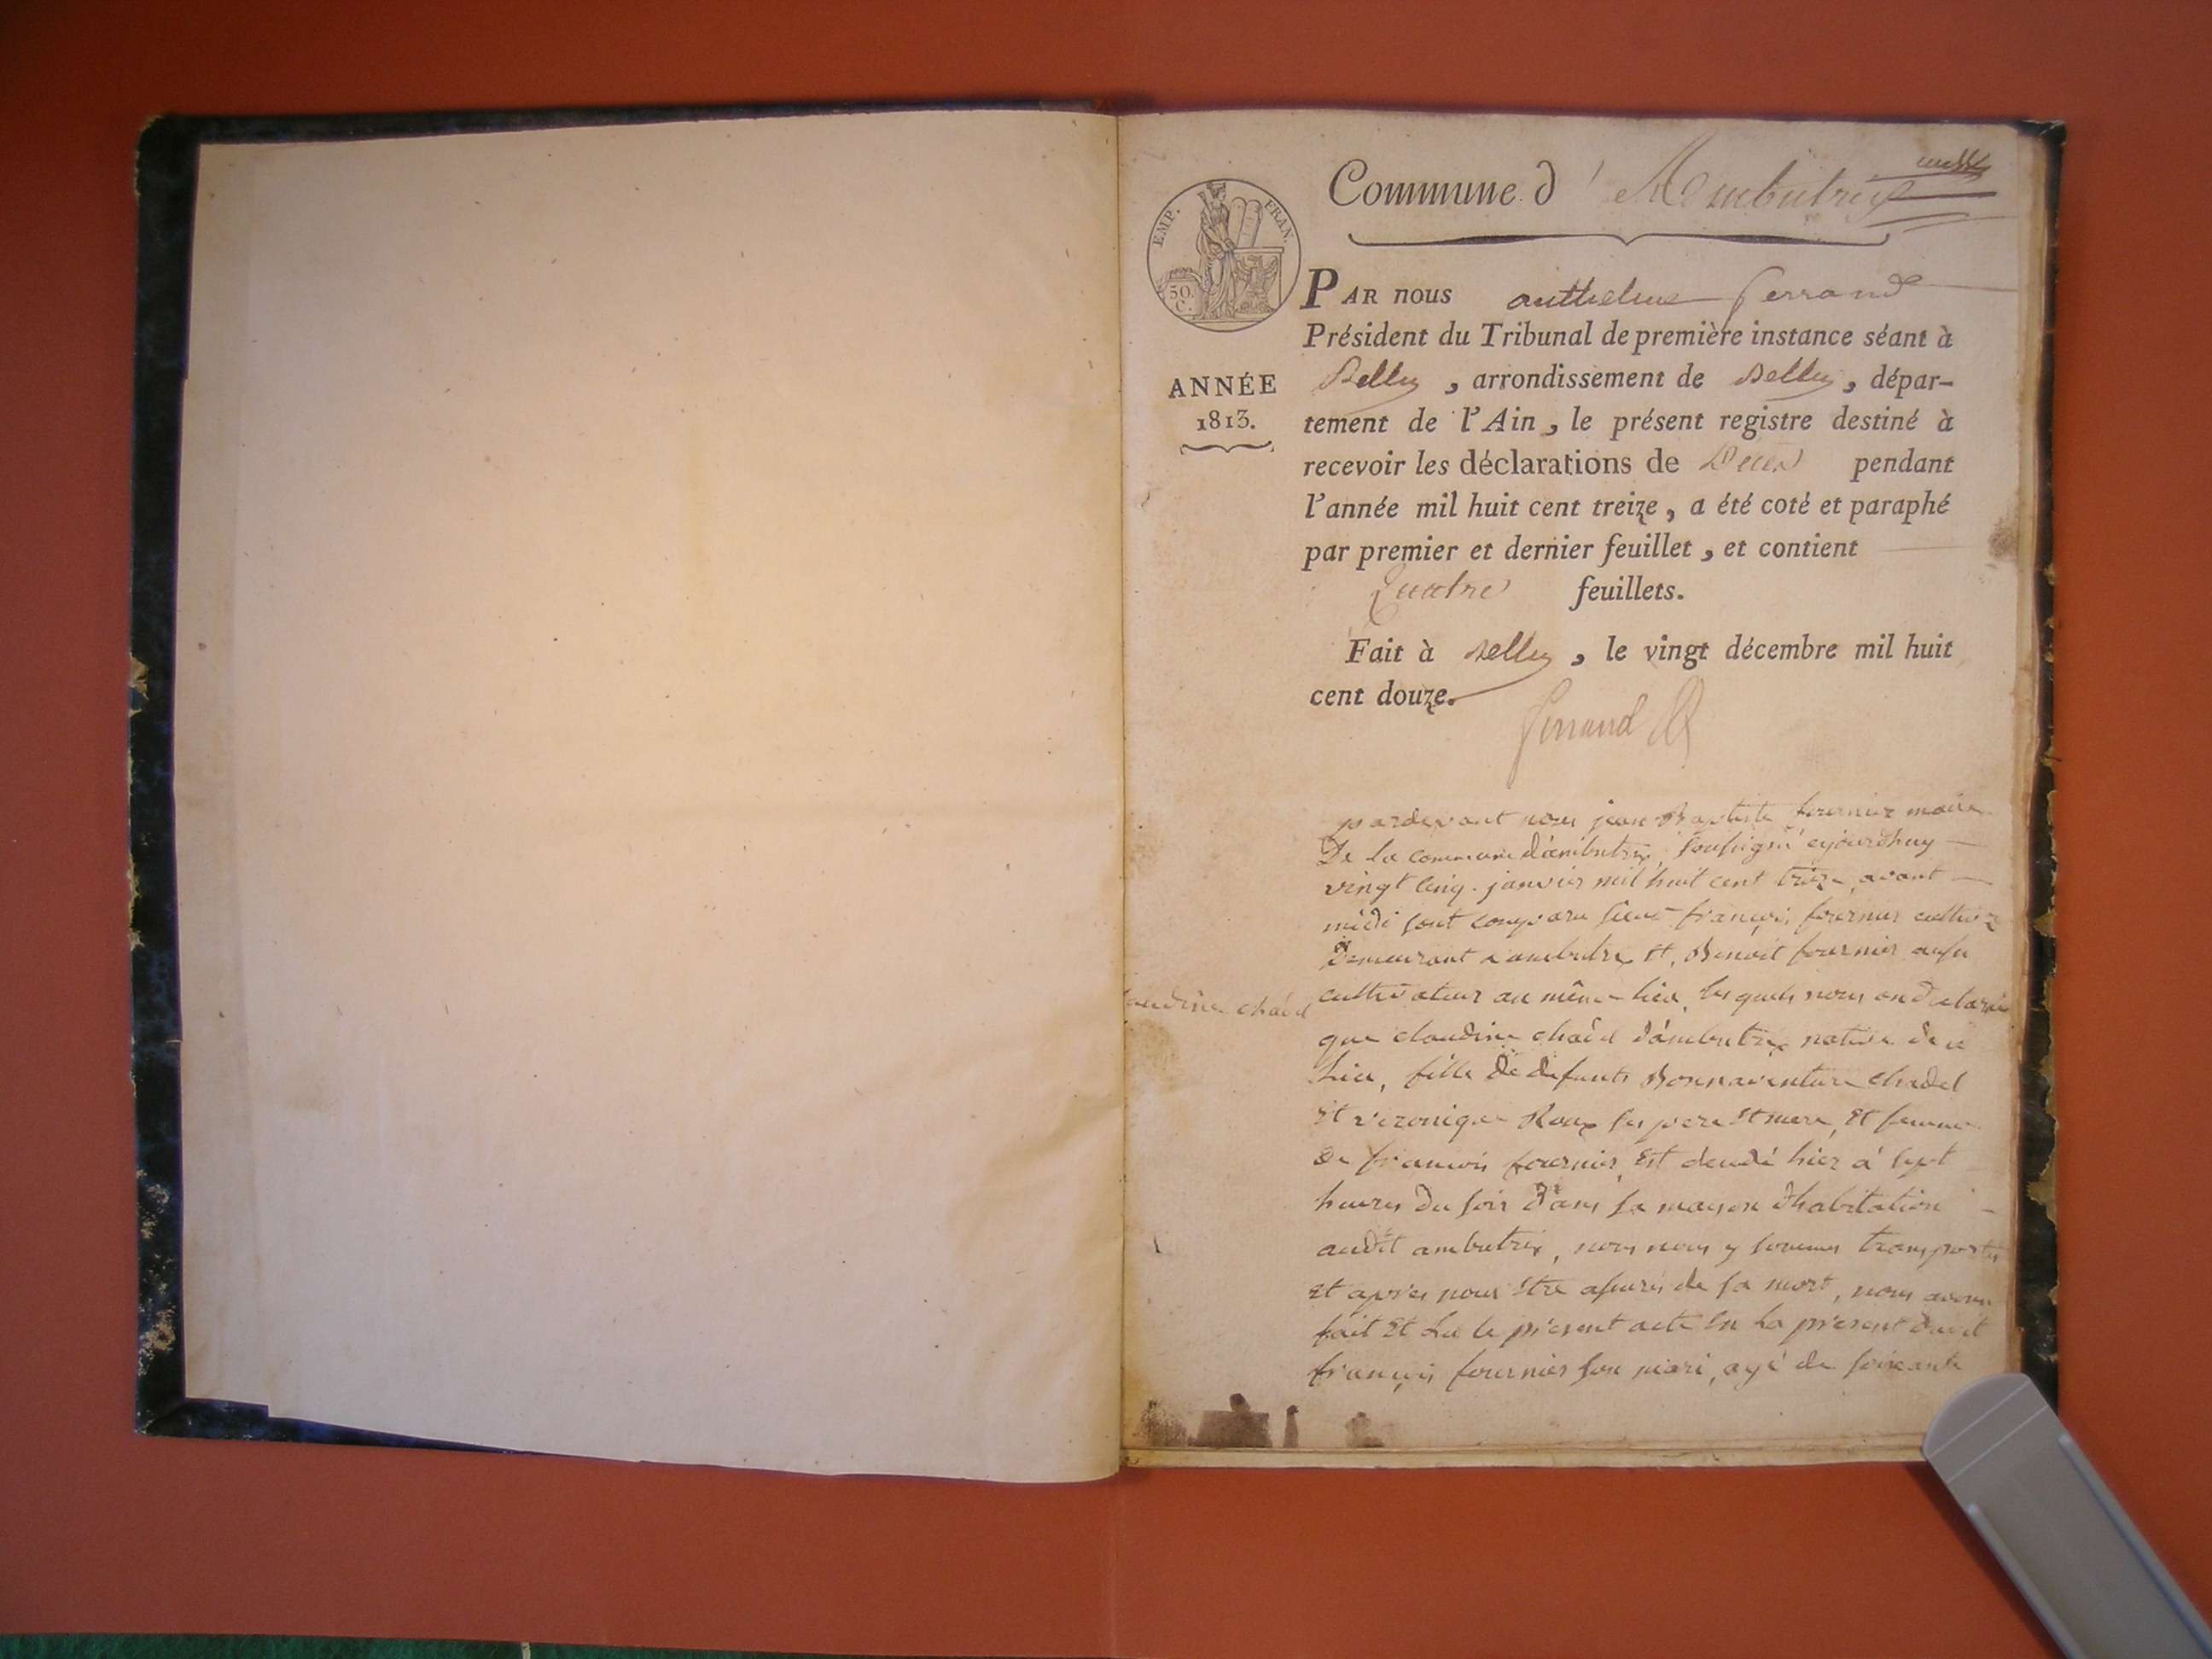 Commune d'Ambutrix
EMP. FRAN.
50.
C.
PAR nous anthelme ferrand
Président du Tribunal de première instance séant à
Belley, arrondissement de Belley, dépar-
ANNÉE
1813.
tement de l'Ain, le présent registre destiné à
recevoir les déclarations de Décès pendant
l'année mil huit cent treize, a été coté et paraphé
par premier et dernier feuillet, et contient
Quatre feuillets.
Fait à Belley, le vingt décembre mil huit
cent douze.
ferrand
pardevant nous jean Baptiste fournier maire
De la commune d'ambutrix soussigné ajourdhuy
vingt cinq janvier mil huit cent treize avant
midi sont comparu françois fournier
Demeurant a ambutrix et Benoit fournier aussi
claudine chadel
cultivateur au même lieu, lesquels nous on declaré
que claudine chadel d'ambutrix native de ce
Lieu, fille de defunts Bonnaventure chadel
et veronique Roux ses pere et mere, et femme
De francois fournier, est decedé hier à sept
heures du soir dans sa mayson dhabitation
audit ambutrix, nous nous y sommes transportés
et après nous être assurés de sa mort, nous avons
fait et Lu le présent acte en la présent dudit
françois fournier son mari, agé de soixante